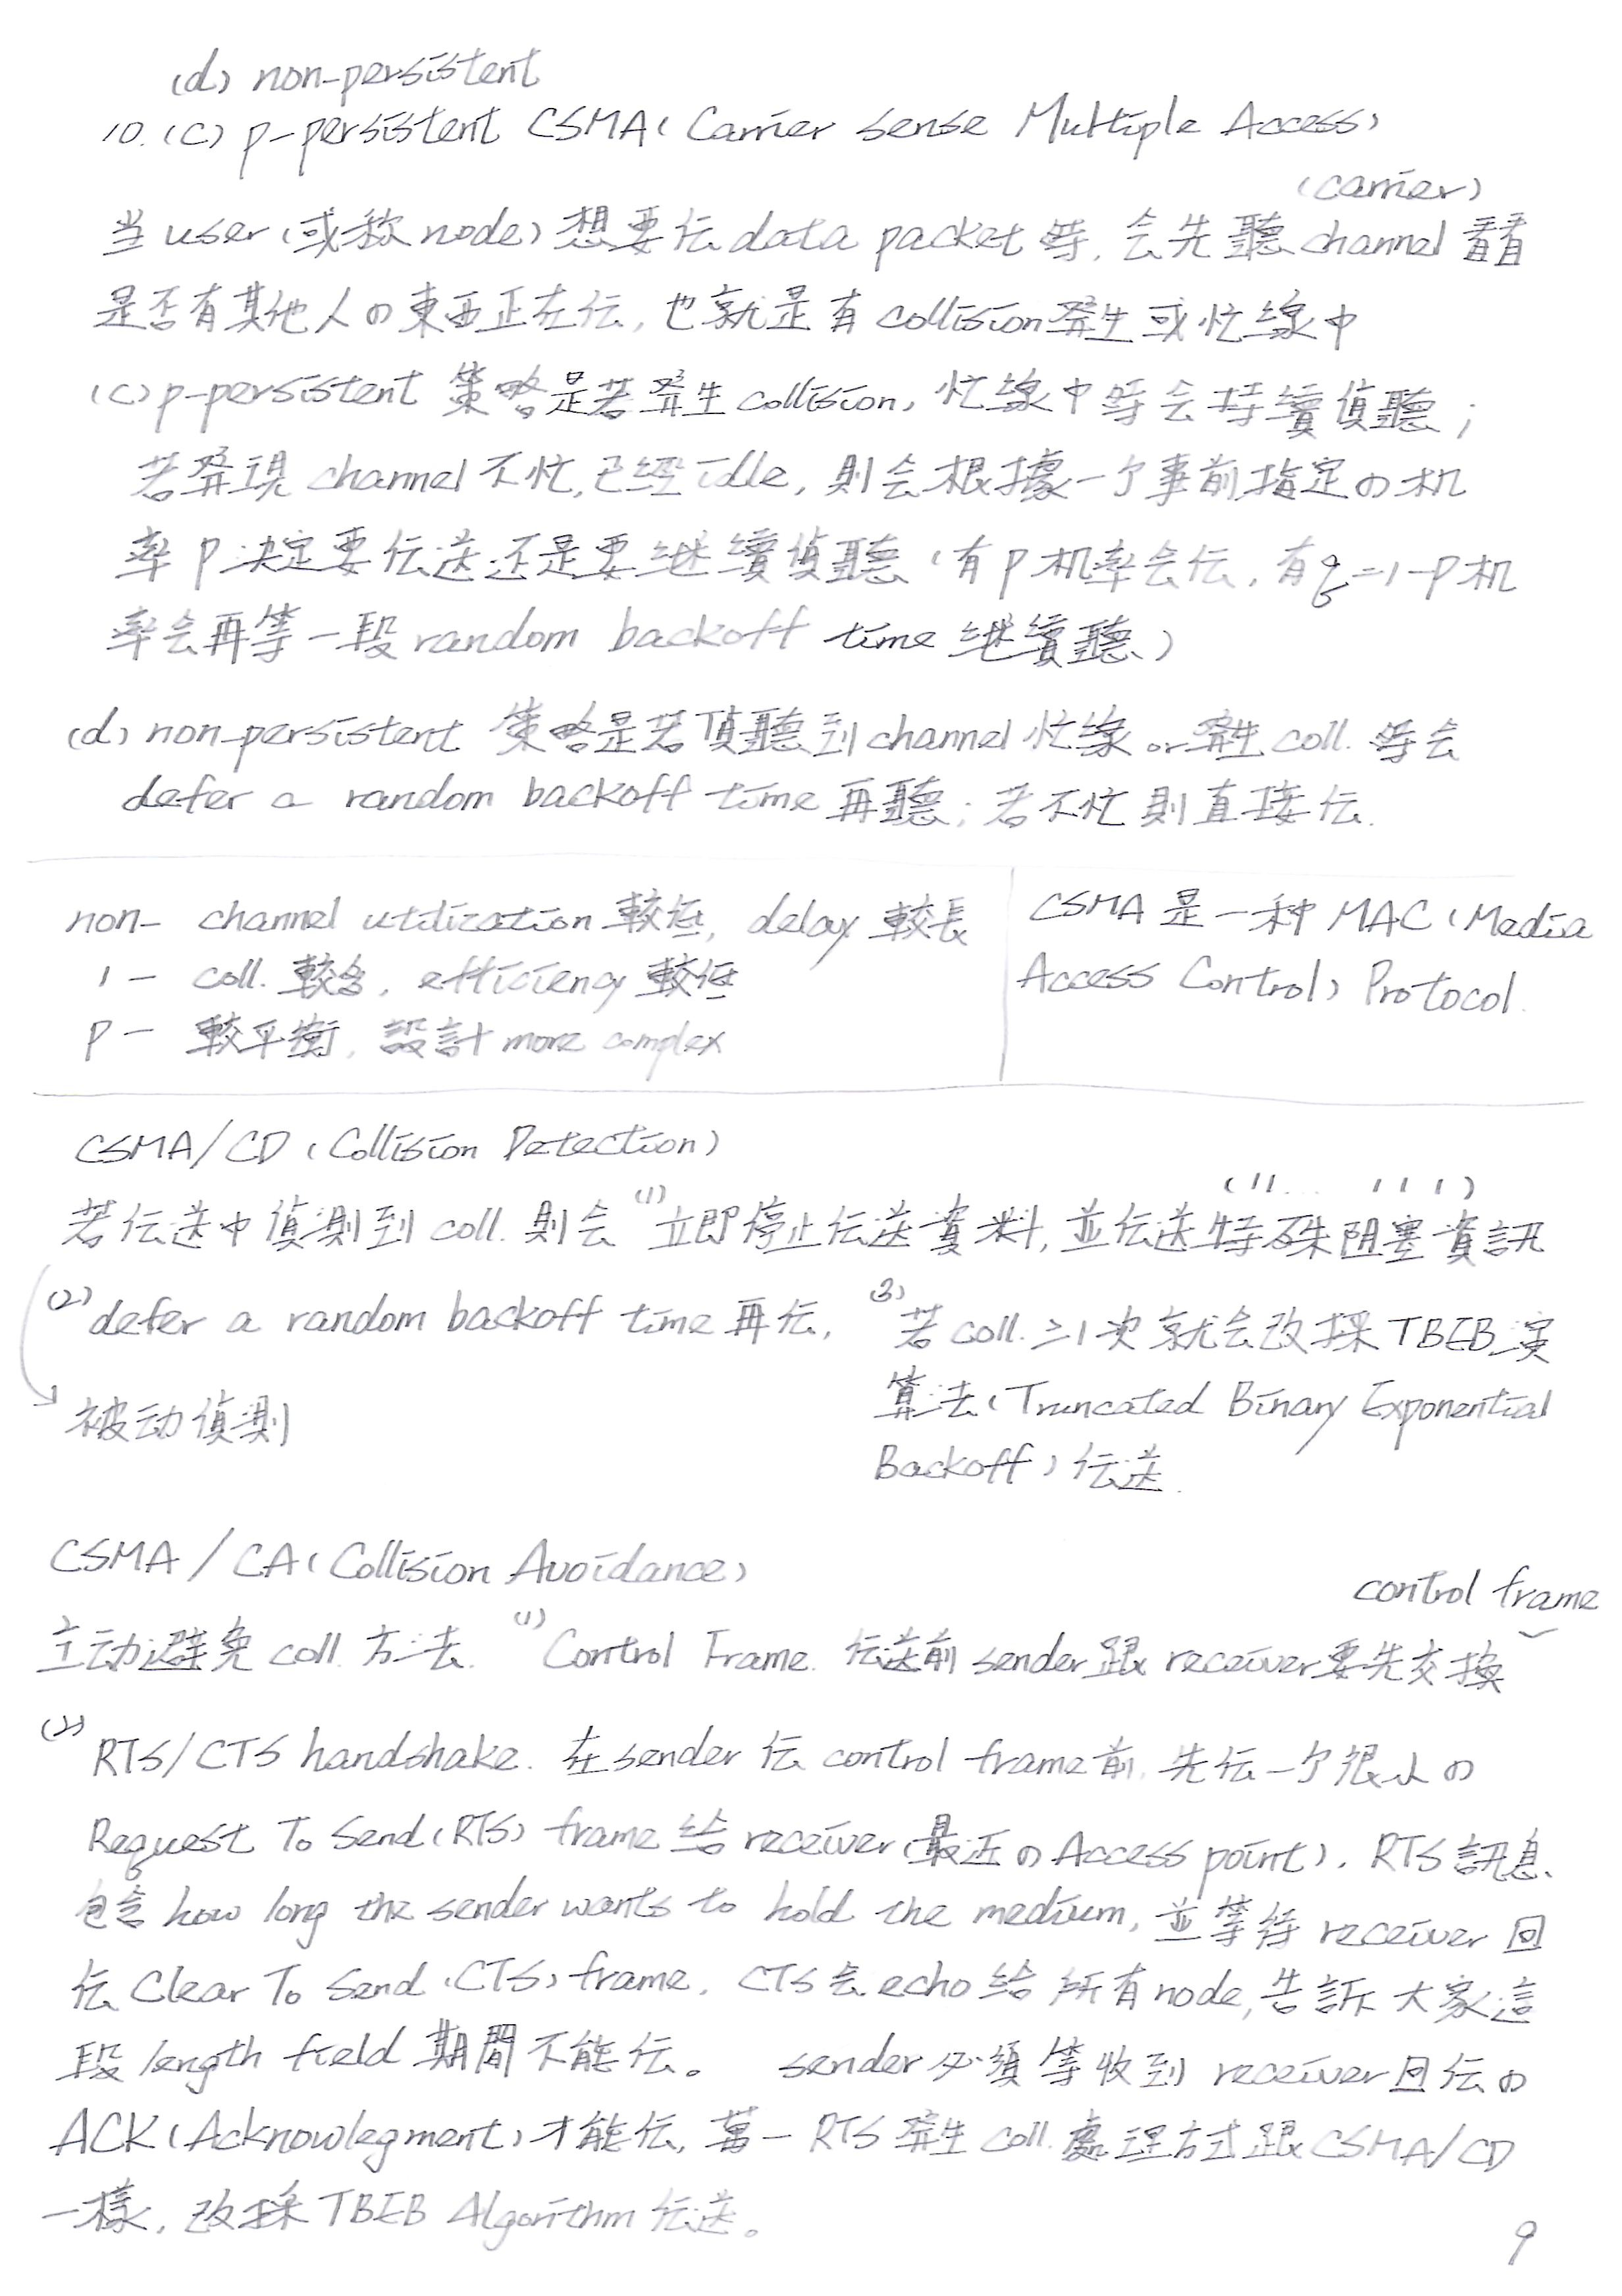 (d) non-persistent
10. (C) p-persistent CSMA (Carrier Sense Multiple Access)
(carrier)
当 user (或称 node) 想要伝 data packet 時, 会先聽 channel 看看
是否有其他人の東西正在伝, 也就是有 collision 発生或忙線中
(C) p-persistent 策略是若発生 collision, 忙線中時会持續偵聽;
若発現 channel 不忙, 已經 idle, 則会根據一个事前指定の机
率 P 決定要伝送还是要继續偵聽 (有 P 机率会伝, 有 q=1-P 机
率会再等一段 random backoff time 继續聽)
(d) non-persistent 策略是若偵聽到 channel 忙線 or 発生 coll. 時会
defer a random backoff time 再聽; 若不忙則直接伝.
non- channel utilization 較低, delay 較長
1- coll. 較多, efficiency 較低
P- 較平衡, 設計 more complex
CSMA 是一种 MAC (Media
Access Control) Protocol.
CSMA/CD (Collision Detection)
(11... 111)
若伝送中偵測到 coll. 則会 (1) 立即停止伝送資料, 並伝送特殊阻塞資訊
(2) defer a random backoff time 再伝, (3) 若 coll. ≥1 次就会改採 TBEB 演
算法 (Truncated Binary Exponential
Backoff) 伝送.
被动偵測
CSMA / CA (Collision Avoidance)
control frame
主动避免 coll. 方法. (1) Control Frame. 伝送前 sender 跟 receiver 要先交換
(2) RTS/CTS handshake. 在 sender 伝 control frame 前, 先伝一个很小の
Request To Send (RTS) frame 給 receiver (最近の Access point). RTS 訊息
包含 how long the sender wants to hold the medium, 並等待 receiver 回
伝 Clear To Send (CTS) frame. CTS 会 echo 給所有 node, 告訴大家這
段 length field 期間不能伝。 sender 必須等收到 receiver 回伝の
ACK (Acknowlegment) 才能伝, 萬一 RTS 発生 coll. 處理方式跟 CSMA/CD
一樣, 改採 TBEB Algorithm 伝送。
9